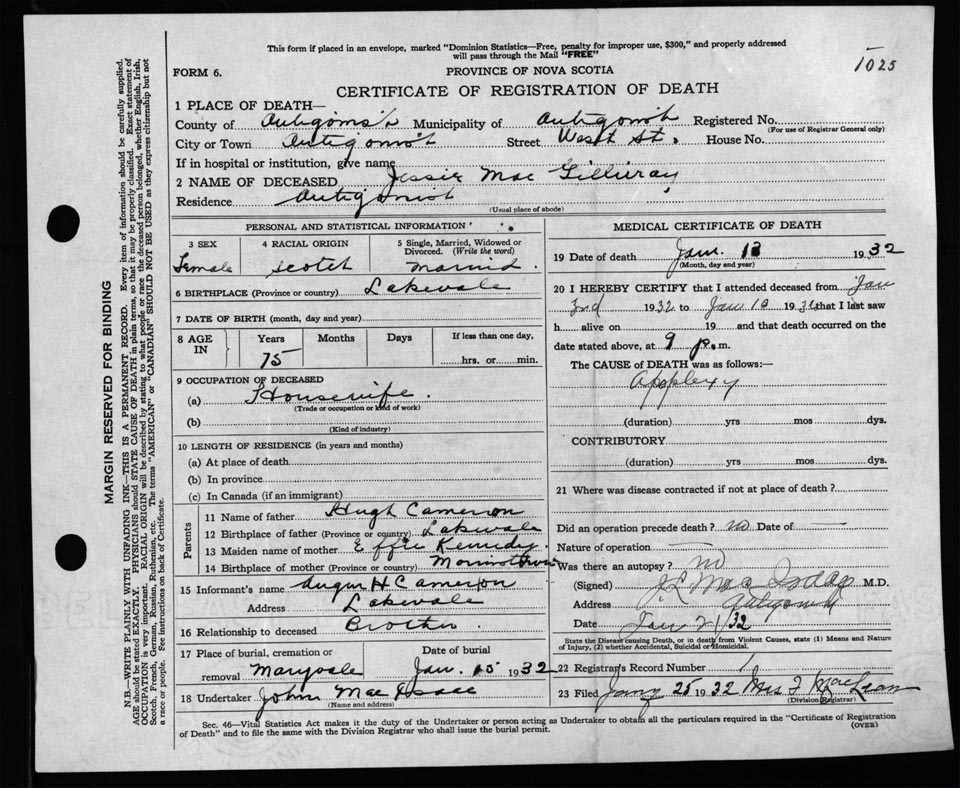 This form if placed in an envelope, marked "Dominion Statistics—Free, penalty for improper use, $300," and properly addressed
will pass through the Mail "FREE"
1025
FORM 6.
PROVINCE OF NOVA SCOTIA
CERTIFICATE OF REGISTRATION OF DEATH
MARGIN RESERVED FOR BINDING
N.B.—WRITE PLAINLY WITH UNFADING INK—THIS IS A PERMANENT RECORD. Every item of information should be carefully supplied.
AGE should be stated EXACTLY. PHYSICIANS should STATE CAUSE OF DEATH in plain terms, so that it may be properly classified. Exact statement of
OCCUPATION is very important. RACIAL ORIGIN will be described by stating to what people or race the deceased person belonged, whether English, Irish,
Scotch, French, German, Russian, Ruthenian, etc. The terms "AMERICAN" or "CANADIAN" SHOULD NOT BE USED as they express citizenship but not
a race or people. See instructions on back of Certificate.
1 PLACE OF DEATH—
County of Antigonish Municipality of Antigonish Registered No.
(For use of Registrar General only)
City or Town Antigonish Street West St. House No.
If in hospital or institution, give name
2 NAME OF DECEASED Jessie Mac Gillivray
Residence Antigonish
(Usual place of abode)
PERSONAL AND STATISTICAL INFORMATION
3 SEX 4 RACIAL ORIGIN 5 Single, Married, Widowed or
Divorced. (Write the word)
Female Scotch Married.
6 BIRTHPLACE (Province or country) Lakevale
7 DATE OF BIRTH (month, day and year)
8 AGE IN Years Months Days If less than one day,
75 hrs. or min.
9 OCCUPATION OF DECEASED
(a) Housewife.
(Trade or occupation or kind of work)
(b)
(Kind of industry)
10 LENGTH OF RESIDENCE (in years and months)
(a) At place of death
(b) In province
(c) In Canada (if an immigrant)
Parents
11 Name of father Hugh Cameron
12 Birthplace of father (Province or country) Lakevale
13 Maiden name of mother Effie Kennedy
14 Birthplace of mother (Province or country)
15 Informant's name Angus H Cameron
Address Lakevale
16 Relationship to deceased Brother.
17 Place of burial, cremation or removal Date of burial
Maryvale Jan. 15 1932
18 Undertaker John Mac Isaac
(Name and address)
MEDICAL CERTIFICATE OF DEATH
19 Date of death Jan. 13 1932
(Month, day and year)
20 I HEREBY CERTIFY that I attended deceased from Jan
3rd 1932 to Jan 13 1932 that I last saw
h alive on 19 and that death occurred on
date stated above, at 9 p.m.
The CAUSE of DEATH was as follows:—
Applexy
(duration) yrs mos dys.
CONTRIBUTORY
(duration) yrs mos dys.
21 Where was disease contracted if not at place of death?
Did an operation precede death? no Date of —
Nature of operation —
Was there an autopsy? no
(Signed) Mac Isaac M.D.
Address Antigonish
Date Jan 21/32
State the Disease causing Death, or in death from Violent Causes, state (1) Means and Nature
of Injury, (2) whether Accidental, Suicidal or Homicidal.
22 Registrar's Record Number 1
23 Filed Jany 25 1932 Mrs F MacLean
(Division Registrar)
Sec. 46—Vital Statistics Act makes it the duty of the Undertaker or person acting as Undertaker to obtain all the particulars required in the "Certificate of Registration
of Death" and to file the same with the Division Registrar who shall issue the burial permit.
(OVER)